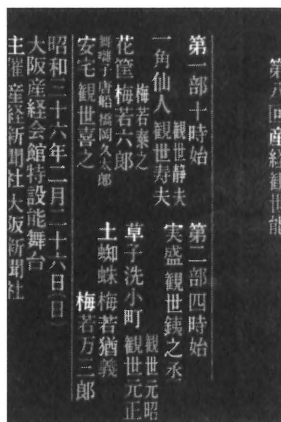 第八回産経観世能
第一部十時始
観世静夫
一角仙人 観世寿夫
梅若泰之
花筐 梅若六郎
舞囃子唐船 橋岡久太郎
安宅 観世喜之
第二部四時始
実盛 観世銕之丞
観世元昭
草子洗小町 観世元正
土蜘蛛 梅若猶義
梅若万三郎
昭和三十六年二月二十六日(日)
大阪産経会館特設能舞台
主催産経新聞社大阪新聞社